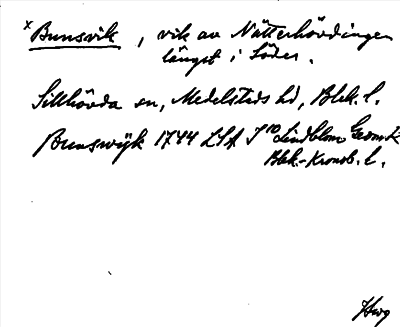 x Bunsvik, vik av Nätterhövdingen
längst i Söder.
Sillhövda sn, Medelsteds hd, Blek. l.
Bunswijk 1744 LSA S10 Lindblom Geom. k
Blek.-Kronob. l.